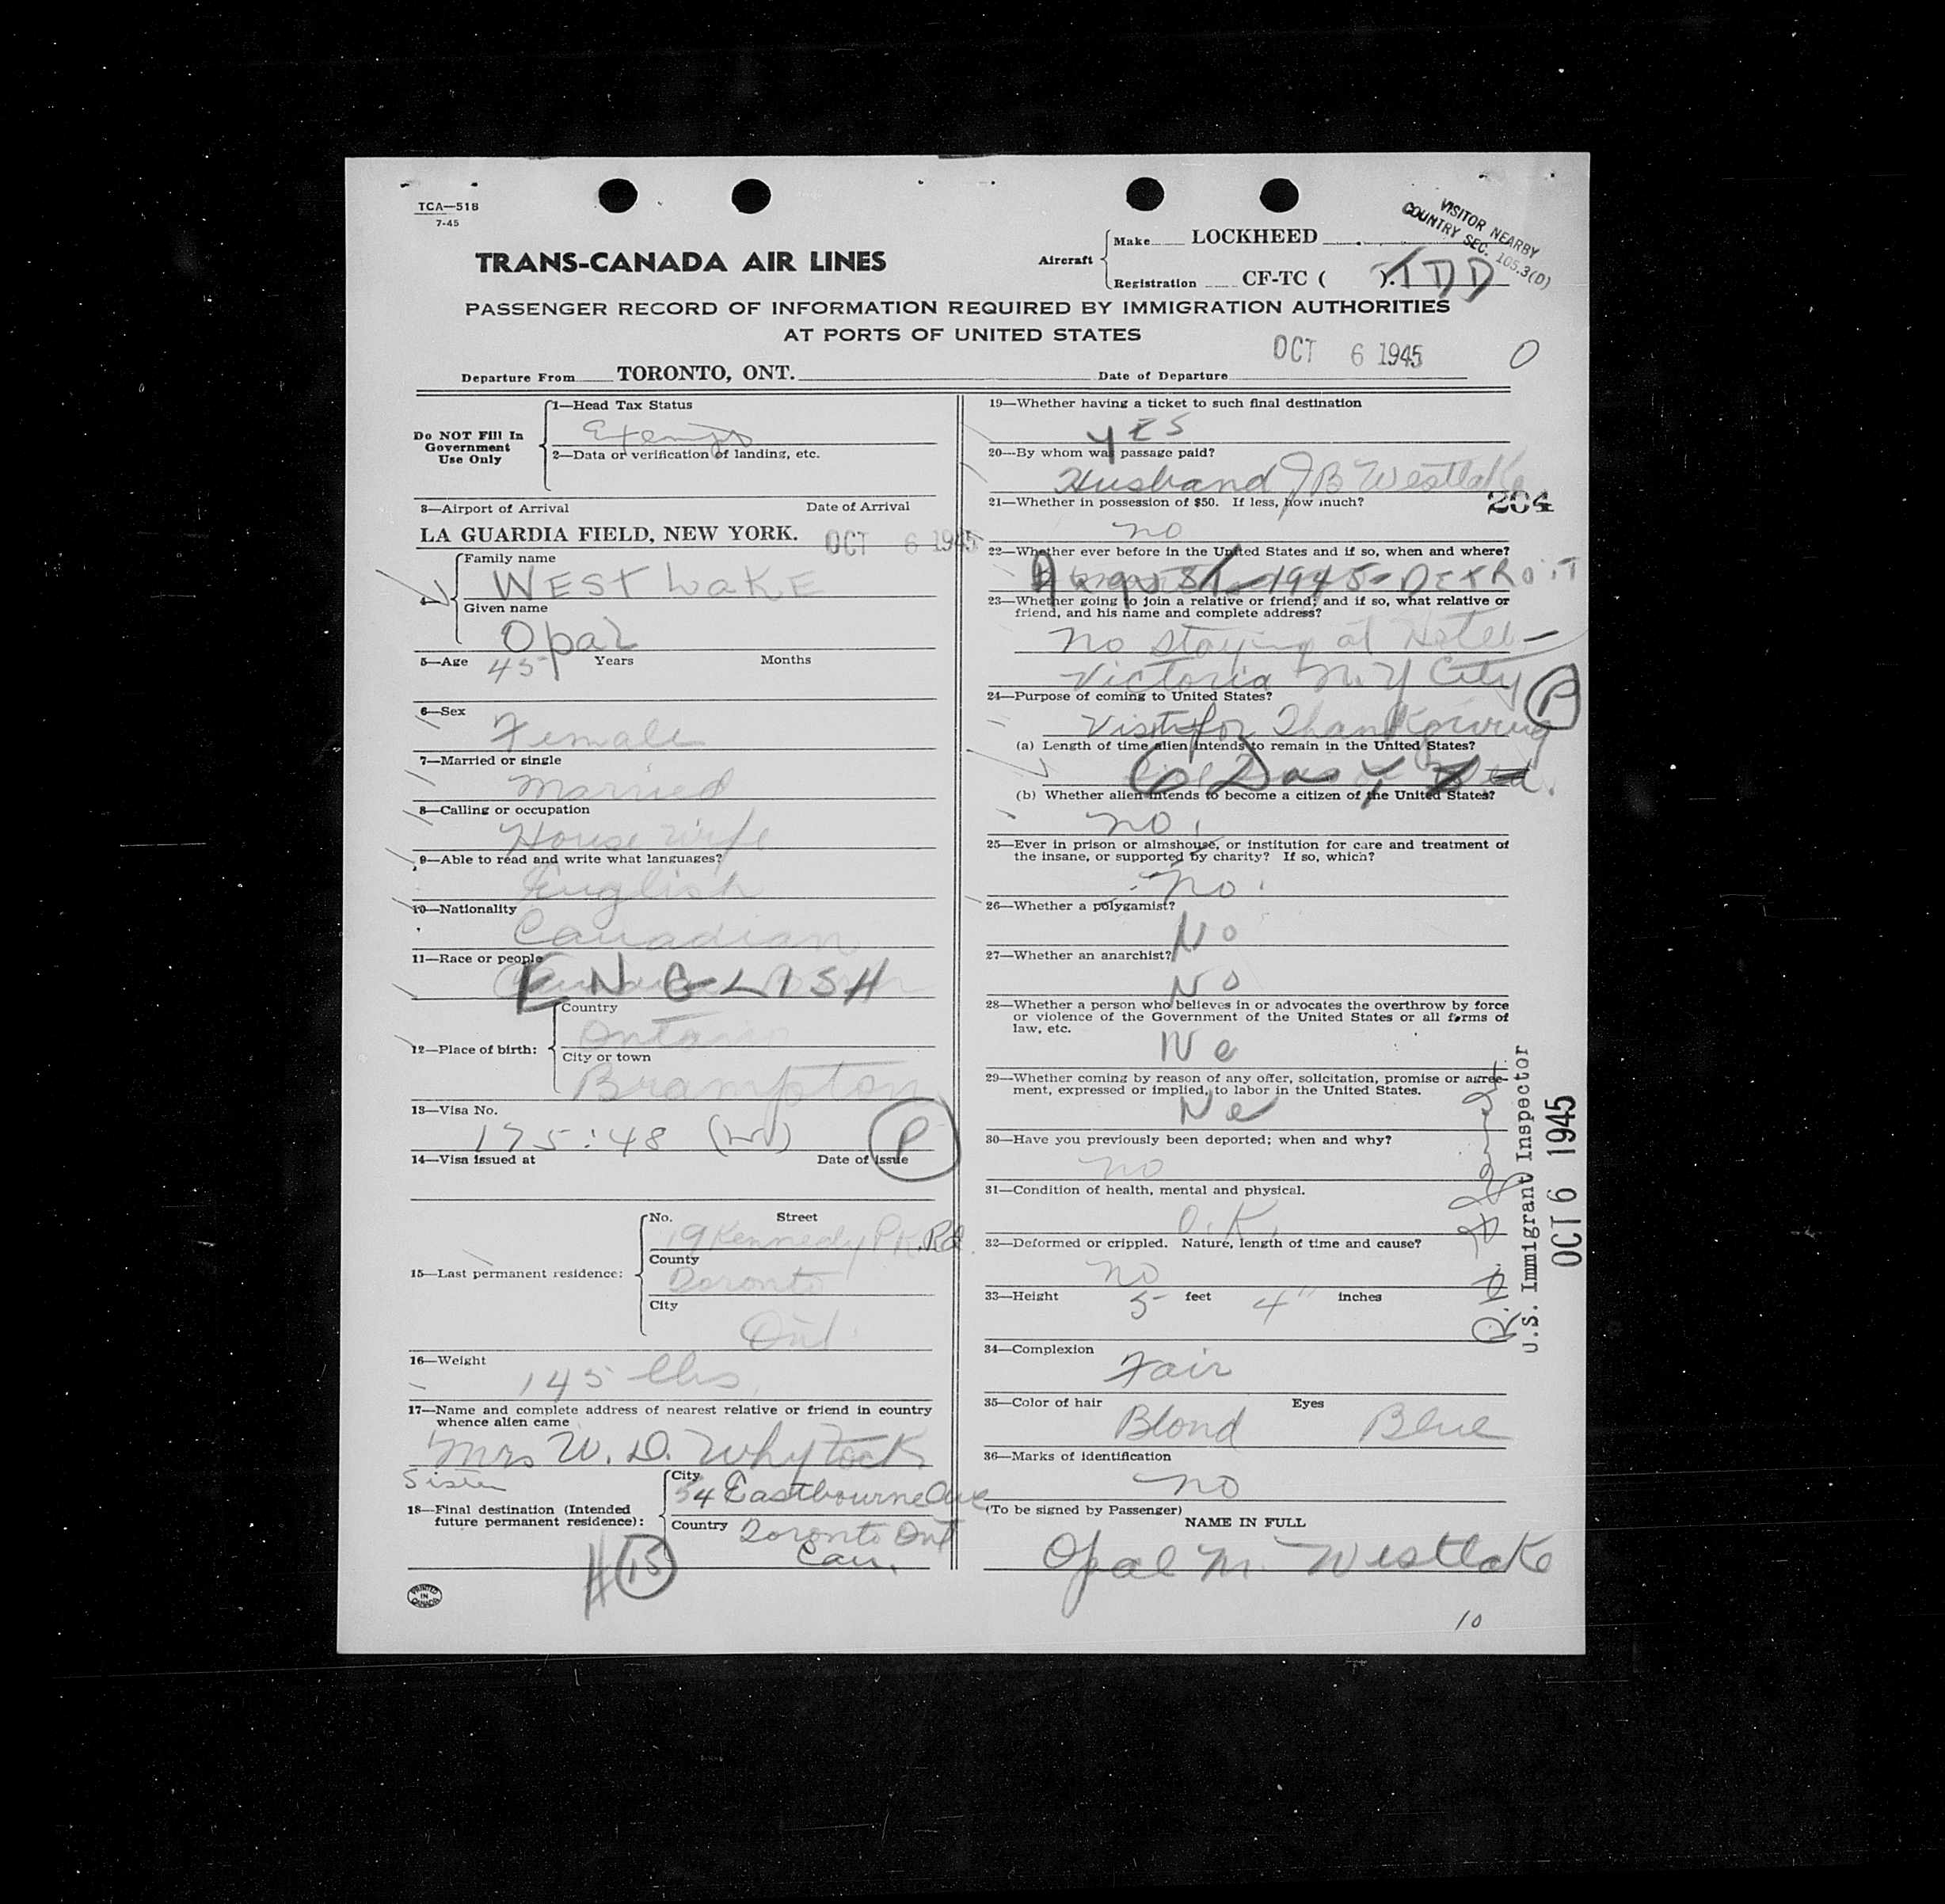 TCA—518
7-45
VISITOR NEARBY
COUNTRY SEC. 105.3(D)
TRANS-CANADA AIR LINES
Aircraft
Make LOCKHEED
Registration CF-TC ( ). TDD
PASSENGER RECORD OF INFORMATION REQUIRED BY IMMIGRATION AUTHORITIES
AT PORTS OF UNITED STATES
Departure From TORONTO, ONT. Date of Departure OCT 6 1945 0
Do NOT Fill In
Government
Use Only
1—Head Tax Status
Exempt
2—Data or verification of landing, etc.
3—Airport of Arrival Date of Arrival
LA GUARDIA FIELD, NEW YORK. OCT 6 1945
4—
Family name
WESTLAKE
Given name
Opal
5—Age 45 Years Months
6—Sex
Female
7—Married or single
Married
8—Calling or occupation
House wife
9—Able to read and write what languages?
English
10—Nationality
Canadian
11—Race or people
ENGLISH
12—Place of birth:
Country
Ontario
City or town
Brampton
13—Visa No.
175:48 (W) P
14—Visa issued at Date of issue
15—Last permanent residence:
No. Street
19 Kennedy Pk. Rd.
County
Toronto
City
Ont.
16—Weight
145 lbs.
17—Name and complete address of nearest relative or friend in country
whence alien came
Mrs W. D. Whytock
Sister
18—Final destination (Intended
future permanent residence):
City
54 Eastbourne Ave
Country Toronto Ont
Can.
#15
PRINTED
IN
CANADA
19—Whether having a ticket to such final destination
YES
20—By whom was passage paid?
Husband JB Westlake
21—Whether in possession of $50. If less, how much?
204
no
22—Whether ever before in the United States and if so, when and where?
August 1945 - DETROIT
23—Whether going to join a relative or friend; and if so, what relative or
friend, and his name and complete address?
no staying at Hotel —
Victoria N.Y City
P
24—Purpose of coming to United States?
Visit for Thanksgiving
(a) Length of time alien intends to remain in the United States?
6 Days
(b) Whether alien intends to become a citizen of the United States?
no.
25—Ever in prison or almshouse, or institution for care and treatment of
the insane, or supported by charity? If so, which?
no.
26—Whether a polygamist?
No
27—Whether an anarchist?
No
28—Whether a person who believes in or advocates the overthrow by force
or violence of the Government of the United States or all forms of
law, etc.
No
29—Whether coming by reason of any offer, solicitation, promise or agree-
ment, expressed or implied, to labor in the United States.
No
30—Have you previously been deported; when and why?
no
31—Condition of health, mental and physical.
O.K.
32—Deformed or crippled. Nature, length of time and cause?
no
33—Height 5 feet 4" inches
34—Complexion
Fair
35—Color of hair Eyes
Blond Blue
36—Marks of identification
no
(To be signed by Passenger)
NAME IN FULL
Opal M. Westlake
10
U.S. Immigrant Inspector
OCT 6 1945